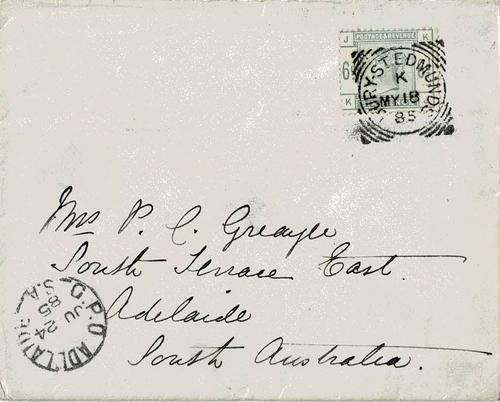 J POSTAGE & REVENUE K
6
K
BURY ST EDMUNDS
K
MY 18
85
Mrs P. C. Greayle
South Terrace East.
Adelaide
South Australia.
G.P.O ADELAIDE
JU 24
85
S.A